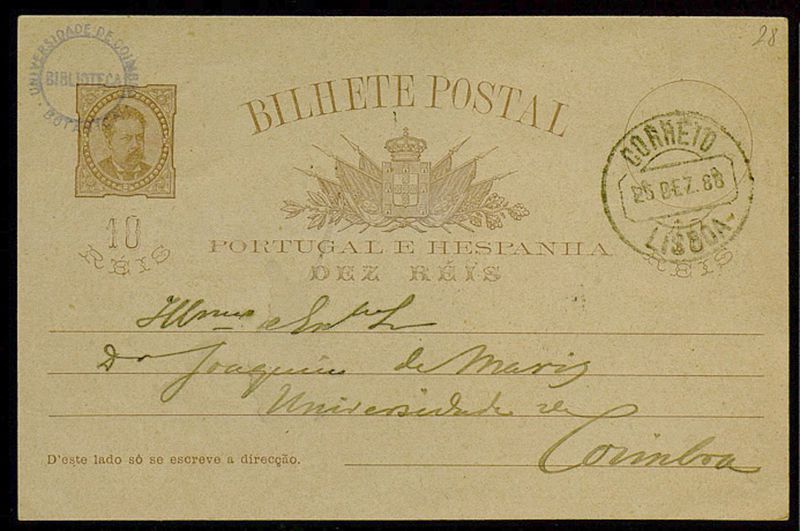 28
UNIVERSIDADE DE COIMBRA
BIBLIOTECA
BILHETE POSTAL
CORREIO
25 DEZ. 88
LISBOA
10
RÉIS
PORTUGAL E HESPANHA
DEZ RÉIS
RÉIS
Illmo e Exmo Sr
Dr Joaquim de Mariz
Universidade de
Coimbra
D'este lado só se escreve a direcção.